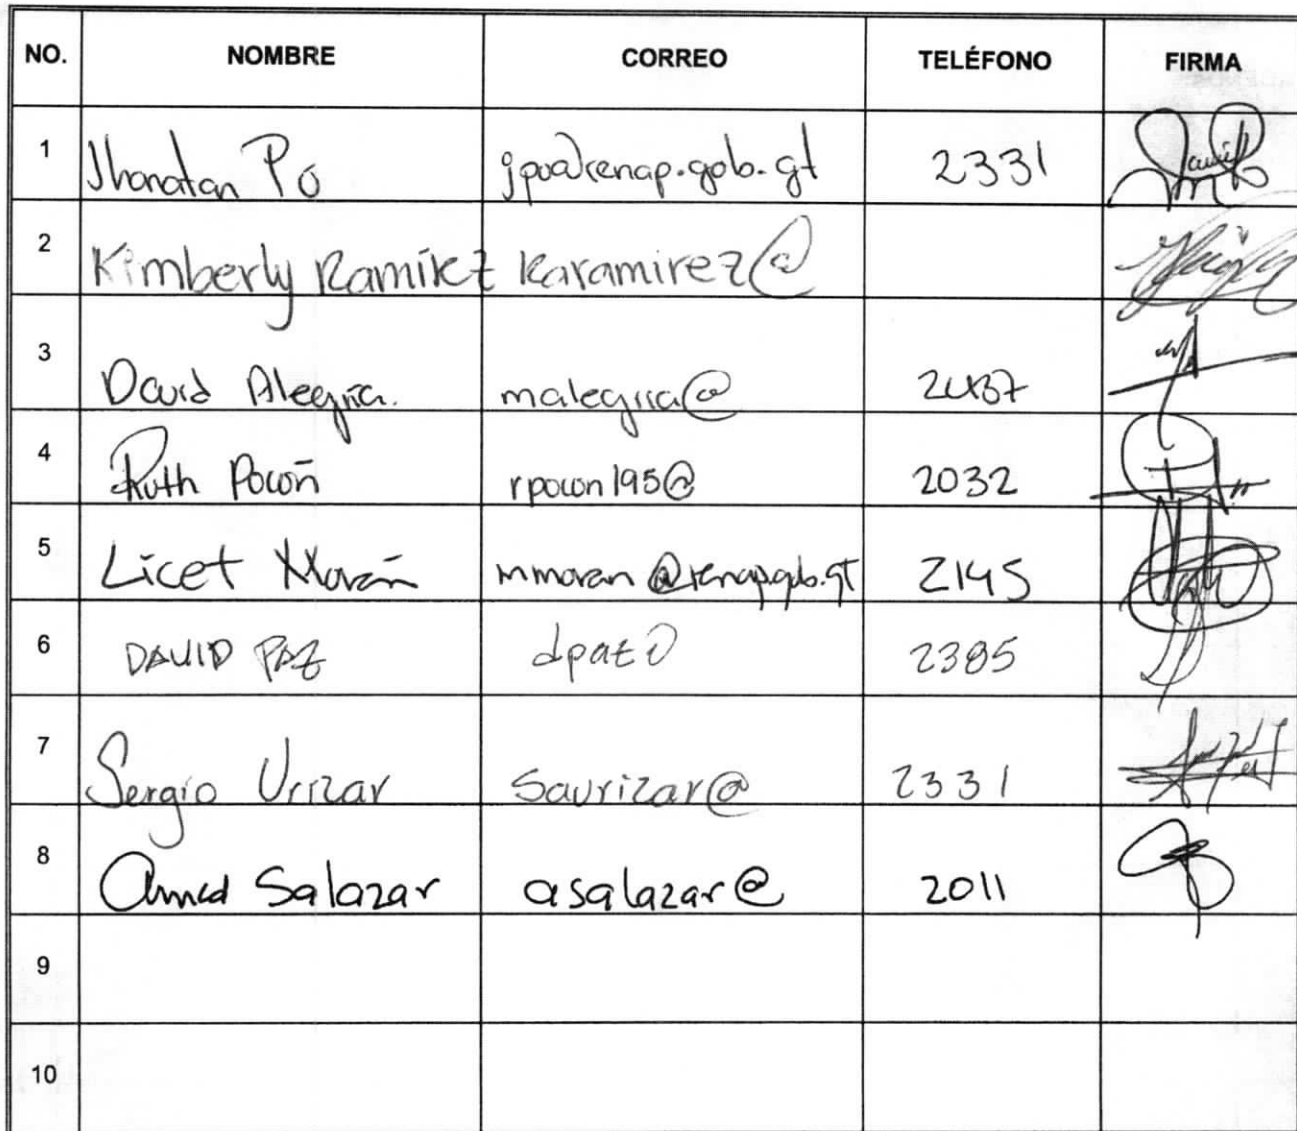 NO. NOMBRE CORREO TELÉFONO FIRMA
1 Jhonatan Po jpo@renap.gob.gt 2331
2 Kimberly Ramírez karamirez@
3 David Alegría. malegria@ 2437
4 Ruth Pocón rpocon195@ 2032
5 Licet Morán mmoran@renap.gob.gt 2145
6 DAVID PAZ dpaz@ 2385
7 Sergio Urizar saurizar@ 2331
8 Salazar asalazar@ 2011
9
10